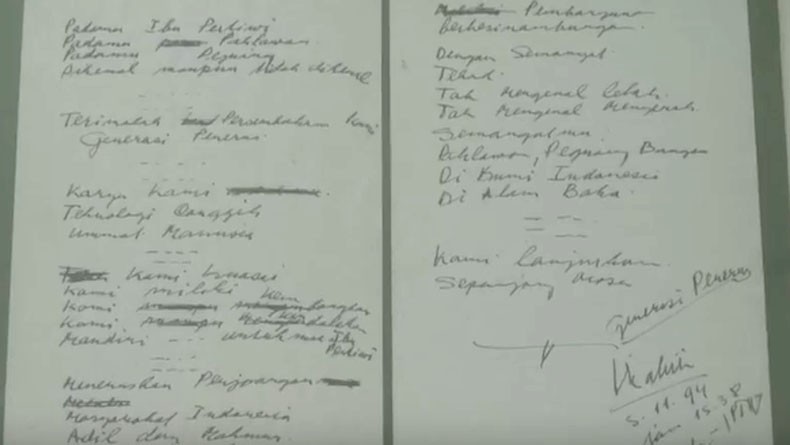 Padamu Ibu Pertiwi
Padamu Pahlawan
Padamu Pejuang
Dikenal maupun tidak dikenal
Terimalah Persembahan Kami
Generasi Penerus
Karya Kami
Tehnologi Canggih
Ummat Manusia
Kami kuasai
Kami miliki
Kami Kembangkan
Kami Kendalikan
Mandiri --- untukmu Ibu Pertiwi
Meneruskan Perjoangan
Masyarakat Indonesia
Adil dan Makmur
Pembangunan
berkesinambungan
Dengan Semangat
Tekad
Tak mengenal lelah
Tak mengenal menyerah
Semangatmu
Pahlawan, Pejuang Bangsa
Di Bumi Indonesia
Di Alam Baka
Kami lanjutkan
Sepanjang Masa
Generasi Penerus
5.11.94
Jam 15.38